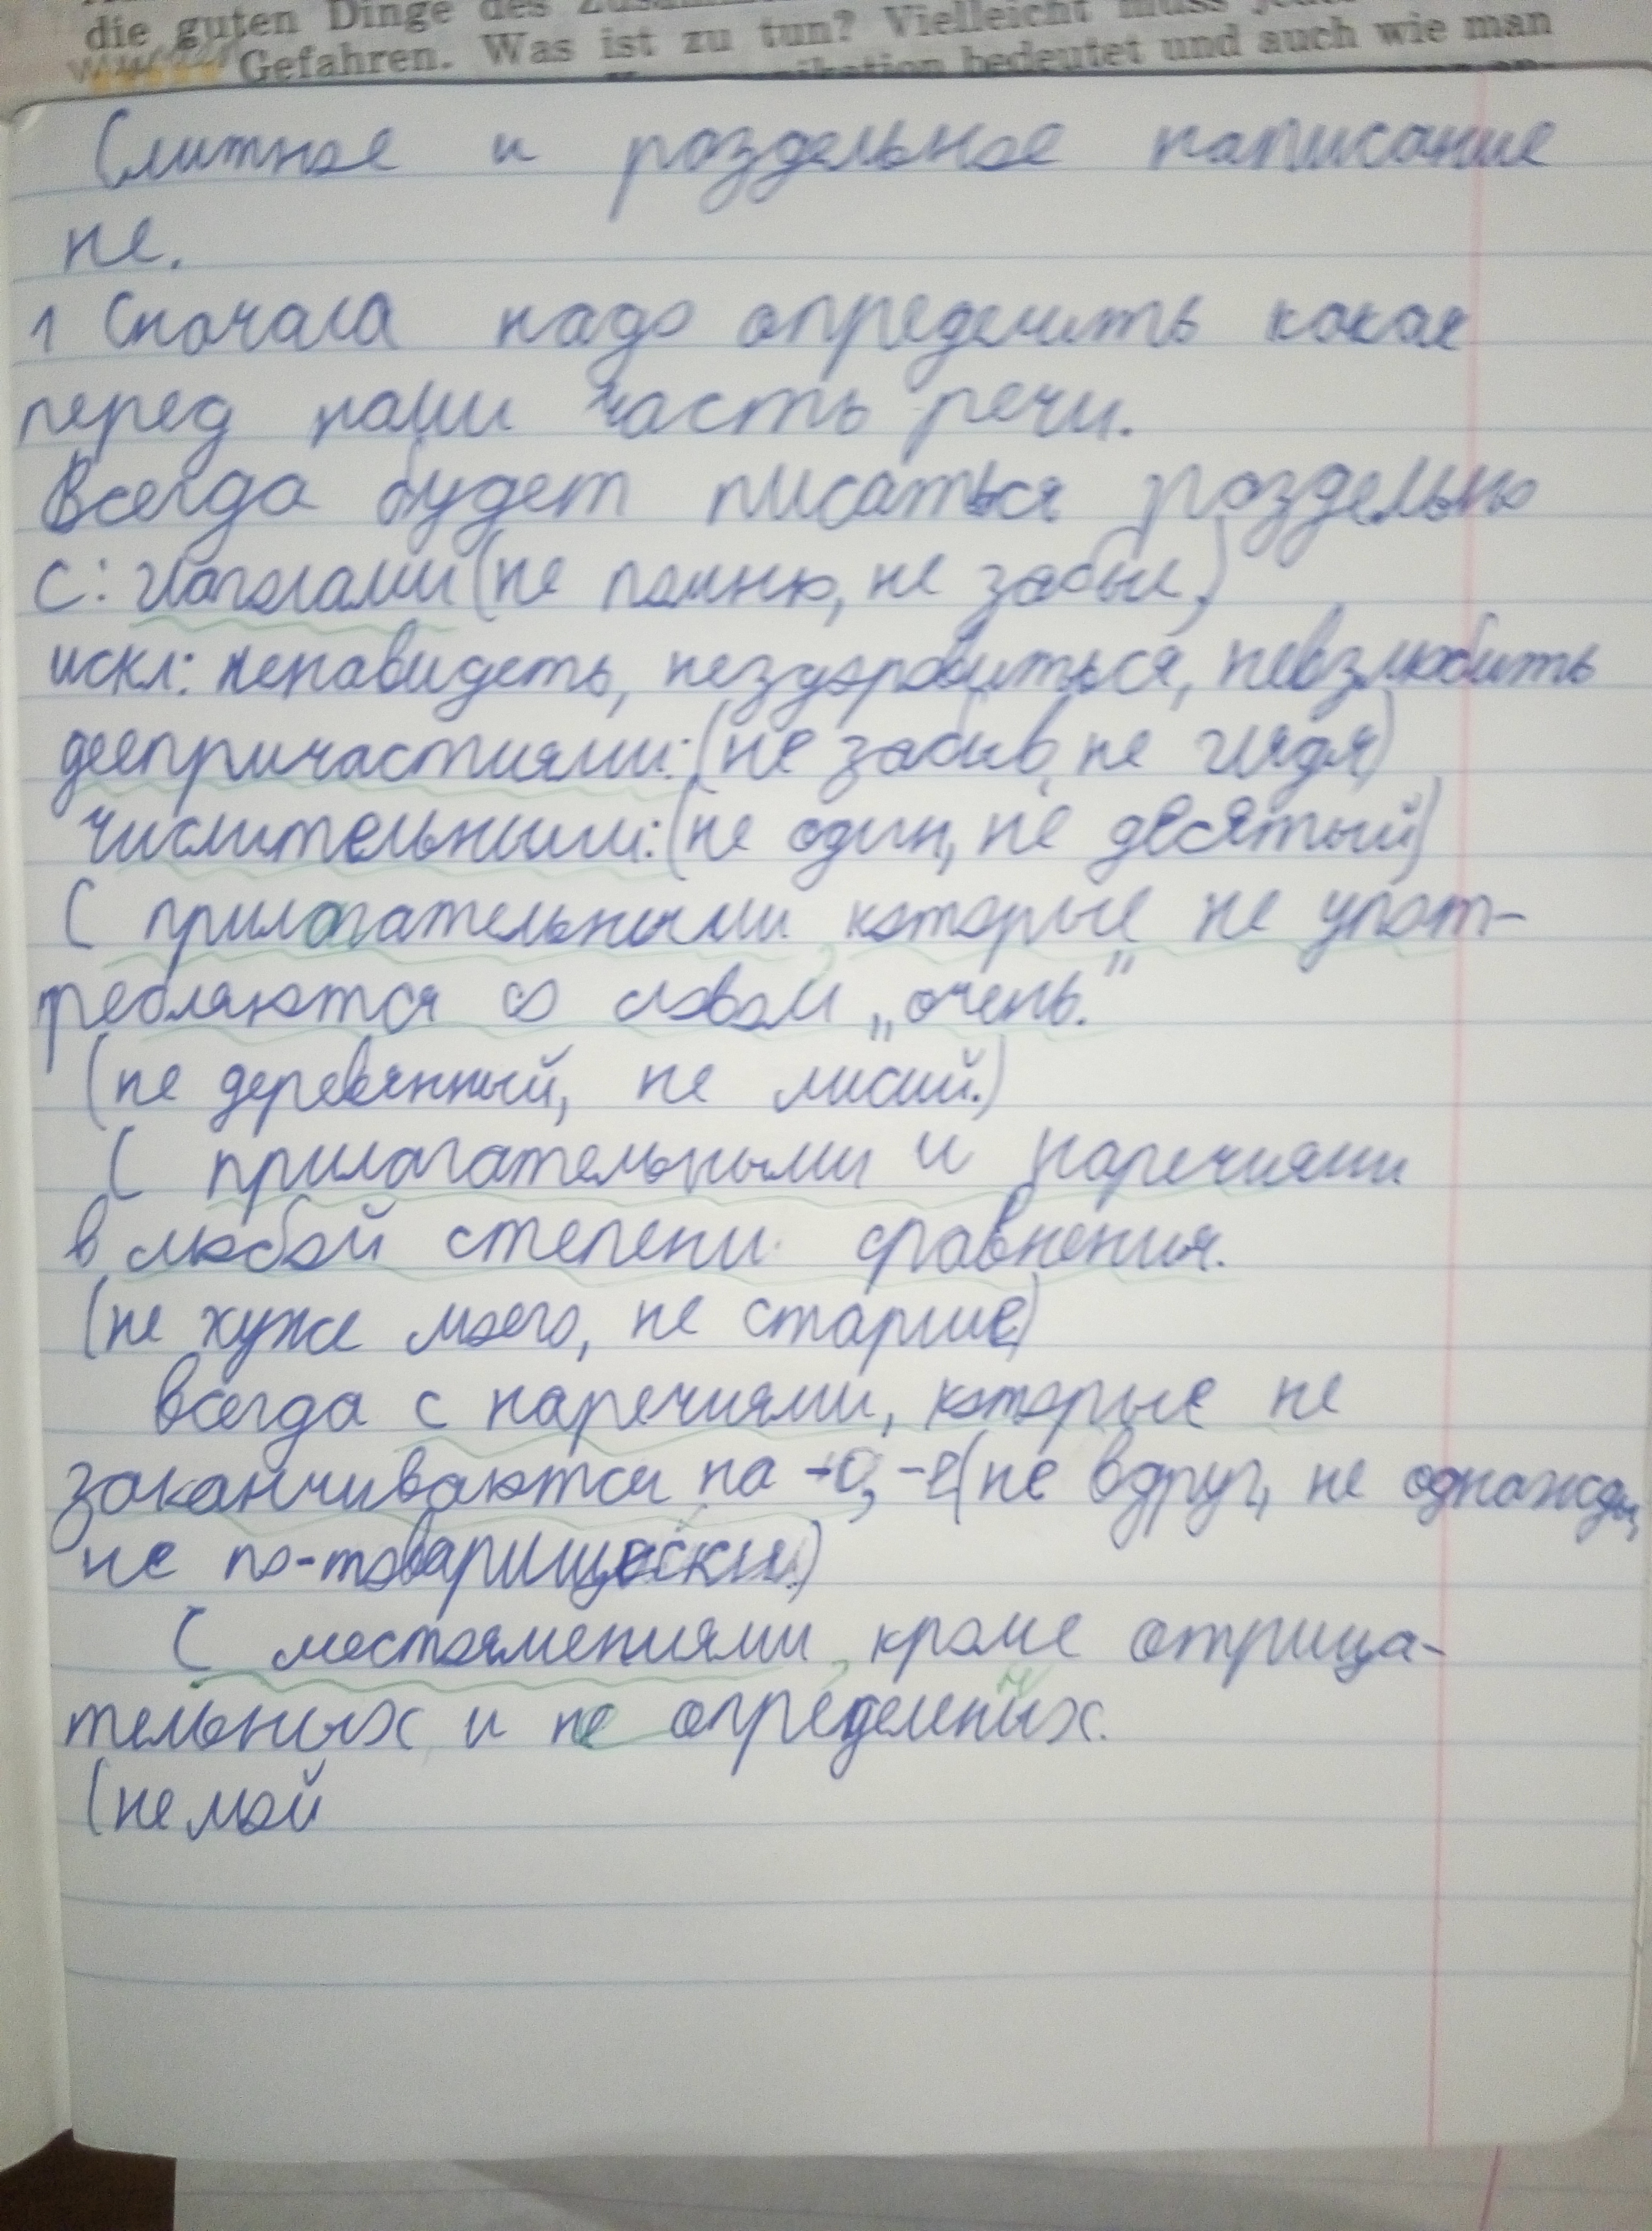 die guten Dinge des
Gefahren. Was ist zu tun? Vielleicht muss
bedeutet und auch wie man
Слитное и раздельное написание
не.
1 Сначала надо определить какая
перед нами часть речи.
Всегда будет писаться раздельно
с: глаголами (не помню, не забыл,)
искл: ненавидеть, нездоровиться, невзлюбить
деепричастиями: (не забыв, не глядя)
числительными: (не один, не десятый)
С прилагательными, которые не упот-
ребляются со словом „очень."
(не деревянный, не лисий.)
С прилагательными и наречиями
в любой степени сравнения.
(не хуже моего, не старше)
всегда с наречиями, которые не
заканчиваются на -о, -е (не вдруг, не однажды,
не по-товарищески.)
С местоимениями, кроме отрица-
тельных и не определенных.
(не мой